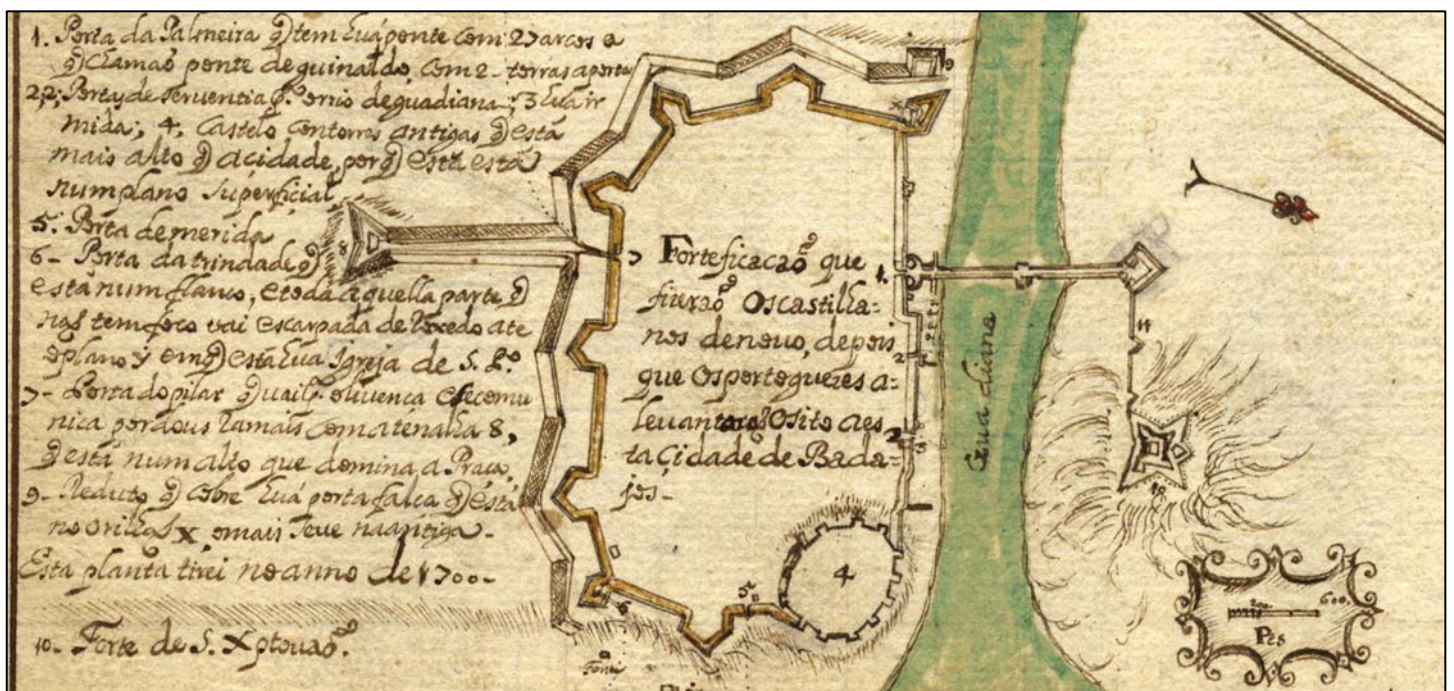 1. Porta da Palmeira q̃ tem huã ponte com 27 arcos a
q̃ chamaõ ponte de guinaldo com 2 torras a porta
2,2; Portas de serventia p.ª o rio de guadiana; 3 hũa ir
mida; 4, Castelo com torras antigas q̃ está
mais alto q̃ a cidade, porq̃ esta está
num plano superficial
5. Porta de merida
6 - Porta da trindade q̃
está num flanco, e toda aquella parte q̃
naõ tem foco vai escarpada de até
o plano y em q̃ está hua Igreja de S. R.º
7 - Porta do pilar q̃ vai p.ª olivenca e se comu
nica por dous ramais com a tenalha 8,
q̃ está num alto que domina a Praca,
9 - Reduto q̃ cobre huã porta falca q̃ está
no orilhaõ x e mais teve na antiga -
Esta planta tirei no anno de 1700 -
10 - Forte de S. Xptovaõ.
Forteficacaõ que
fizraõ Os castilha=
nos de novo, depois
que Os portoguezes a=
levantaraõ O sitio a es
ta Cidade de Bada=
jos -
Guadiana
1.
2
2
3
4
5
6
7
8
9
x
10
11
Fonte
200.
600.
Pés